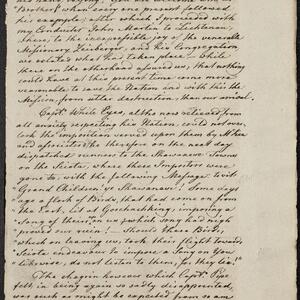 his hand saying, you are welcome one
"Brother! when every one present followed
his example, after which I proceeded with
my Conductor John Martin to Lichtenau,
there, to the inexpressible joy of the venerable
Missionary Zeisberger, and his Congregation,
we related what had taken place — while
these on the other hand assured us, that nothing
could have at this present time come more
seasonable to save the Nation and with this the
Mission, from utter destruction, than our arrival.
Captn. White Eyes, altho now relieved from
all anxiety respecting his Nation, could not over-
look the imposition served upon them by McKee
and associates; he therefore on the next day
dispatched runners to the Shawanose Towns
on the Scioto, where these Impostors were
gone to, with the following Message to wit
"Grand Children! ye Shawanose! Some days
"ago a flock of Birds, that had come on from
"the East, lit at Goschochking, imposing a
"Song of theirs, on us, which song had nigh
"proved our ruin! — Should these Birds,
"which on leaving us, took their flight towards
"Scioto, endeavour to impose a Song on You
"likewise, do not listen to them, for they lie!"
The chagrin however which Captn. Pipe
felt in being again so sadly disappointed,
was such as might be expected from so am-